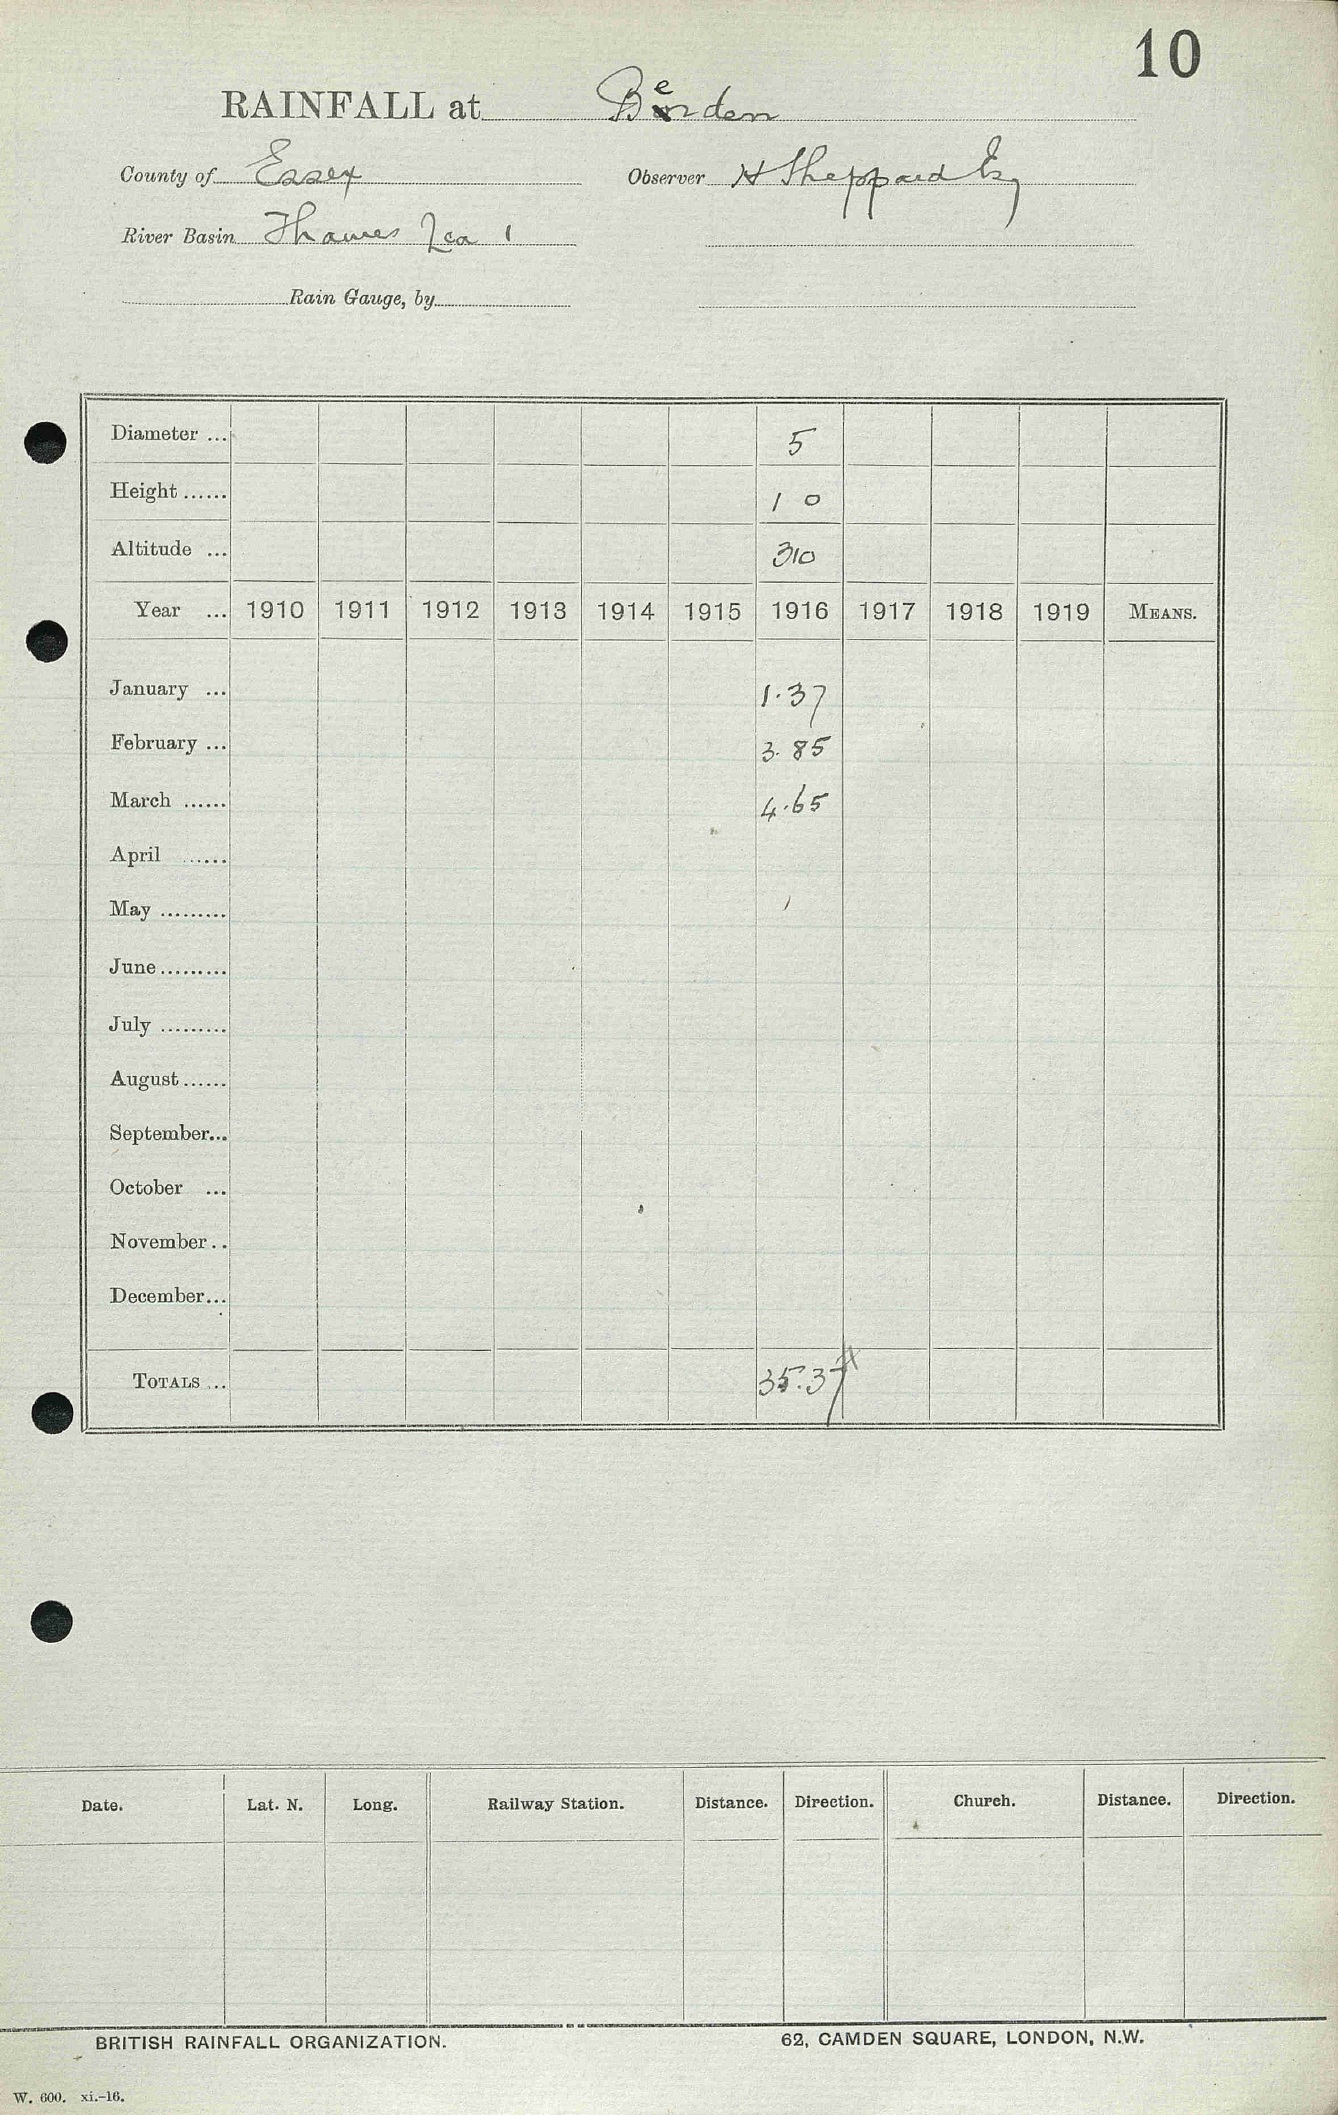 10
RAINFALL at Berden
County of Essex Observer H Sheppard Esq
River Basin Thames Lea 1
Rain Gauge, by
Diameter ... 5
Height ...... 1 0
Altitude ... 310
Year ... 1910 1911 1912 1913 1914 1915 1916 1917 1918 1919 MEANS.
January ... 1.37
February ... 3.85
March ...... 4.65
April ......
May .........
June .........
July .........
August ......
September...
October ...
November ..
December...
TOTALS ... 35.37
Date. Lat. N. Long. Railway Station. Distance. Direction. Church. Distance. Direction.
BRITISH RAINFALL ORGANIZATION. 62, CAMDEN SQUARE, LONDON, N.W.
W. 600. xi.-16.